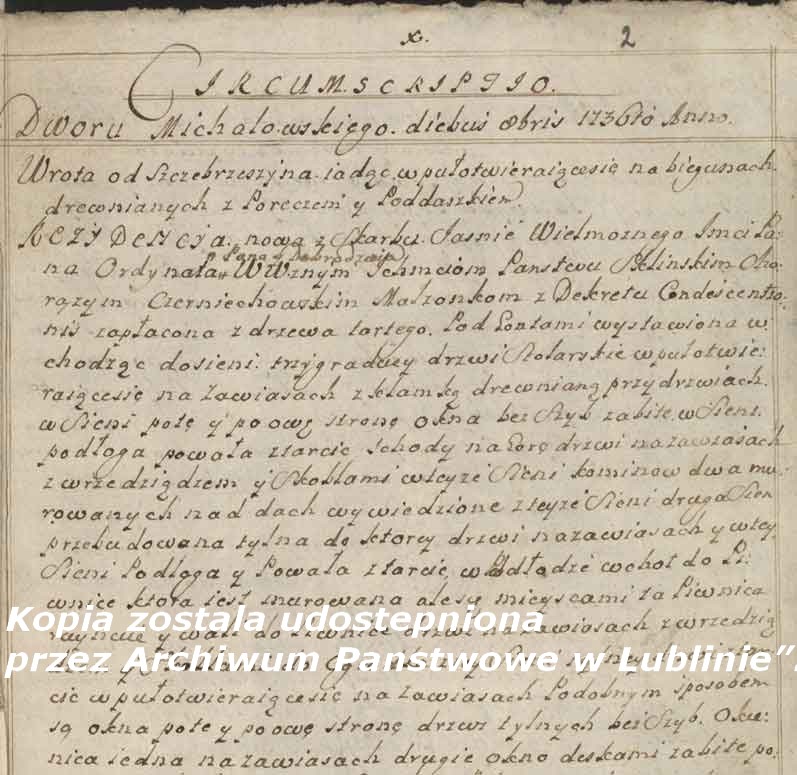 x. 2
CIRCUMSCRIPTIO.
Dworu Michalowskiego. diebus 8bris 1736tó Anno.
Wrota od Szczebrzeszyna iadąc. w pułotwieraiącesię na biegunach
drewnianych z Poręczem y Poddaszkiem.
REZYDENCYA. nowa z Skarbu Jasnie Wielmoznego Imci Pa:
Pana y Dobrodzieia
na Ordynata WWznym Ichmciom Panstwu Cho:
rązym Czerniechowskim Małzonkom z Dekretu Condescentio:
nis zapłacona z drzewa tartego. Pod Gontami wystawiona w
chodząc dosieni. trzy graduzy drzwi Stolarskie w pułotwie:
raiącesię na zawiasach z klamką drewnianą przy drzwiach.
w Sieni potę y po owę stronę okna bez Szyb zabite. w Sieni
podłoga powała z tarcic Schody na Gorę drzwi na zawiasach
z wrzeciądzem y Skoblami w teyze Sieni kominow dwa mu:
rowanych nad dach wywiedzione z teyze Sieni druga Sien
przebudowana tylna do ktorey drzwi na zawiasach y w tey
Sieni Podłoga y Powała z tarcic, w Podłodze wchot do Pi:
wnice ktora iest murowana ale się mieyscami ta Piwnica
raynuie y wali do Piwnice drzwi na zawiasach z wrzecią
cic w pułotwieraiącesię na zawiasach Podobnym sposobem
są okna potę y po owę stronę drzwi tylnych bez Szyb. Okie:
nica iedna na zawiasach drugie okno deskami zabite po.
Kopia została udostepniona
przez Archiwum Panstwowe w Lublinie”.